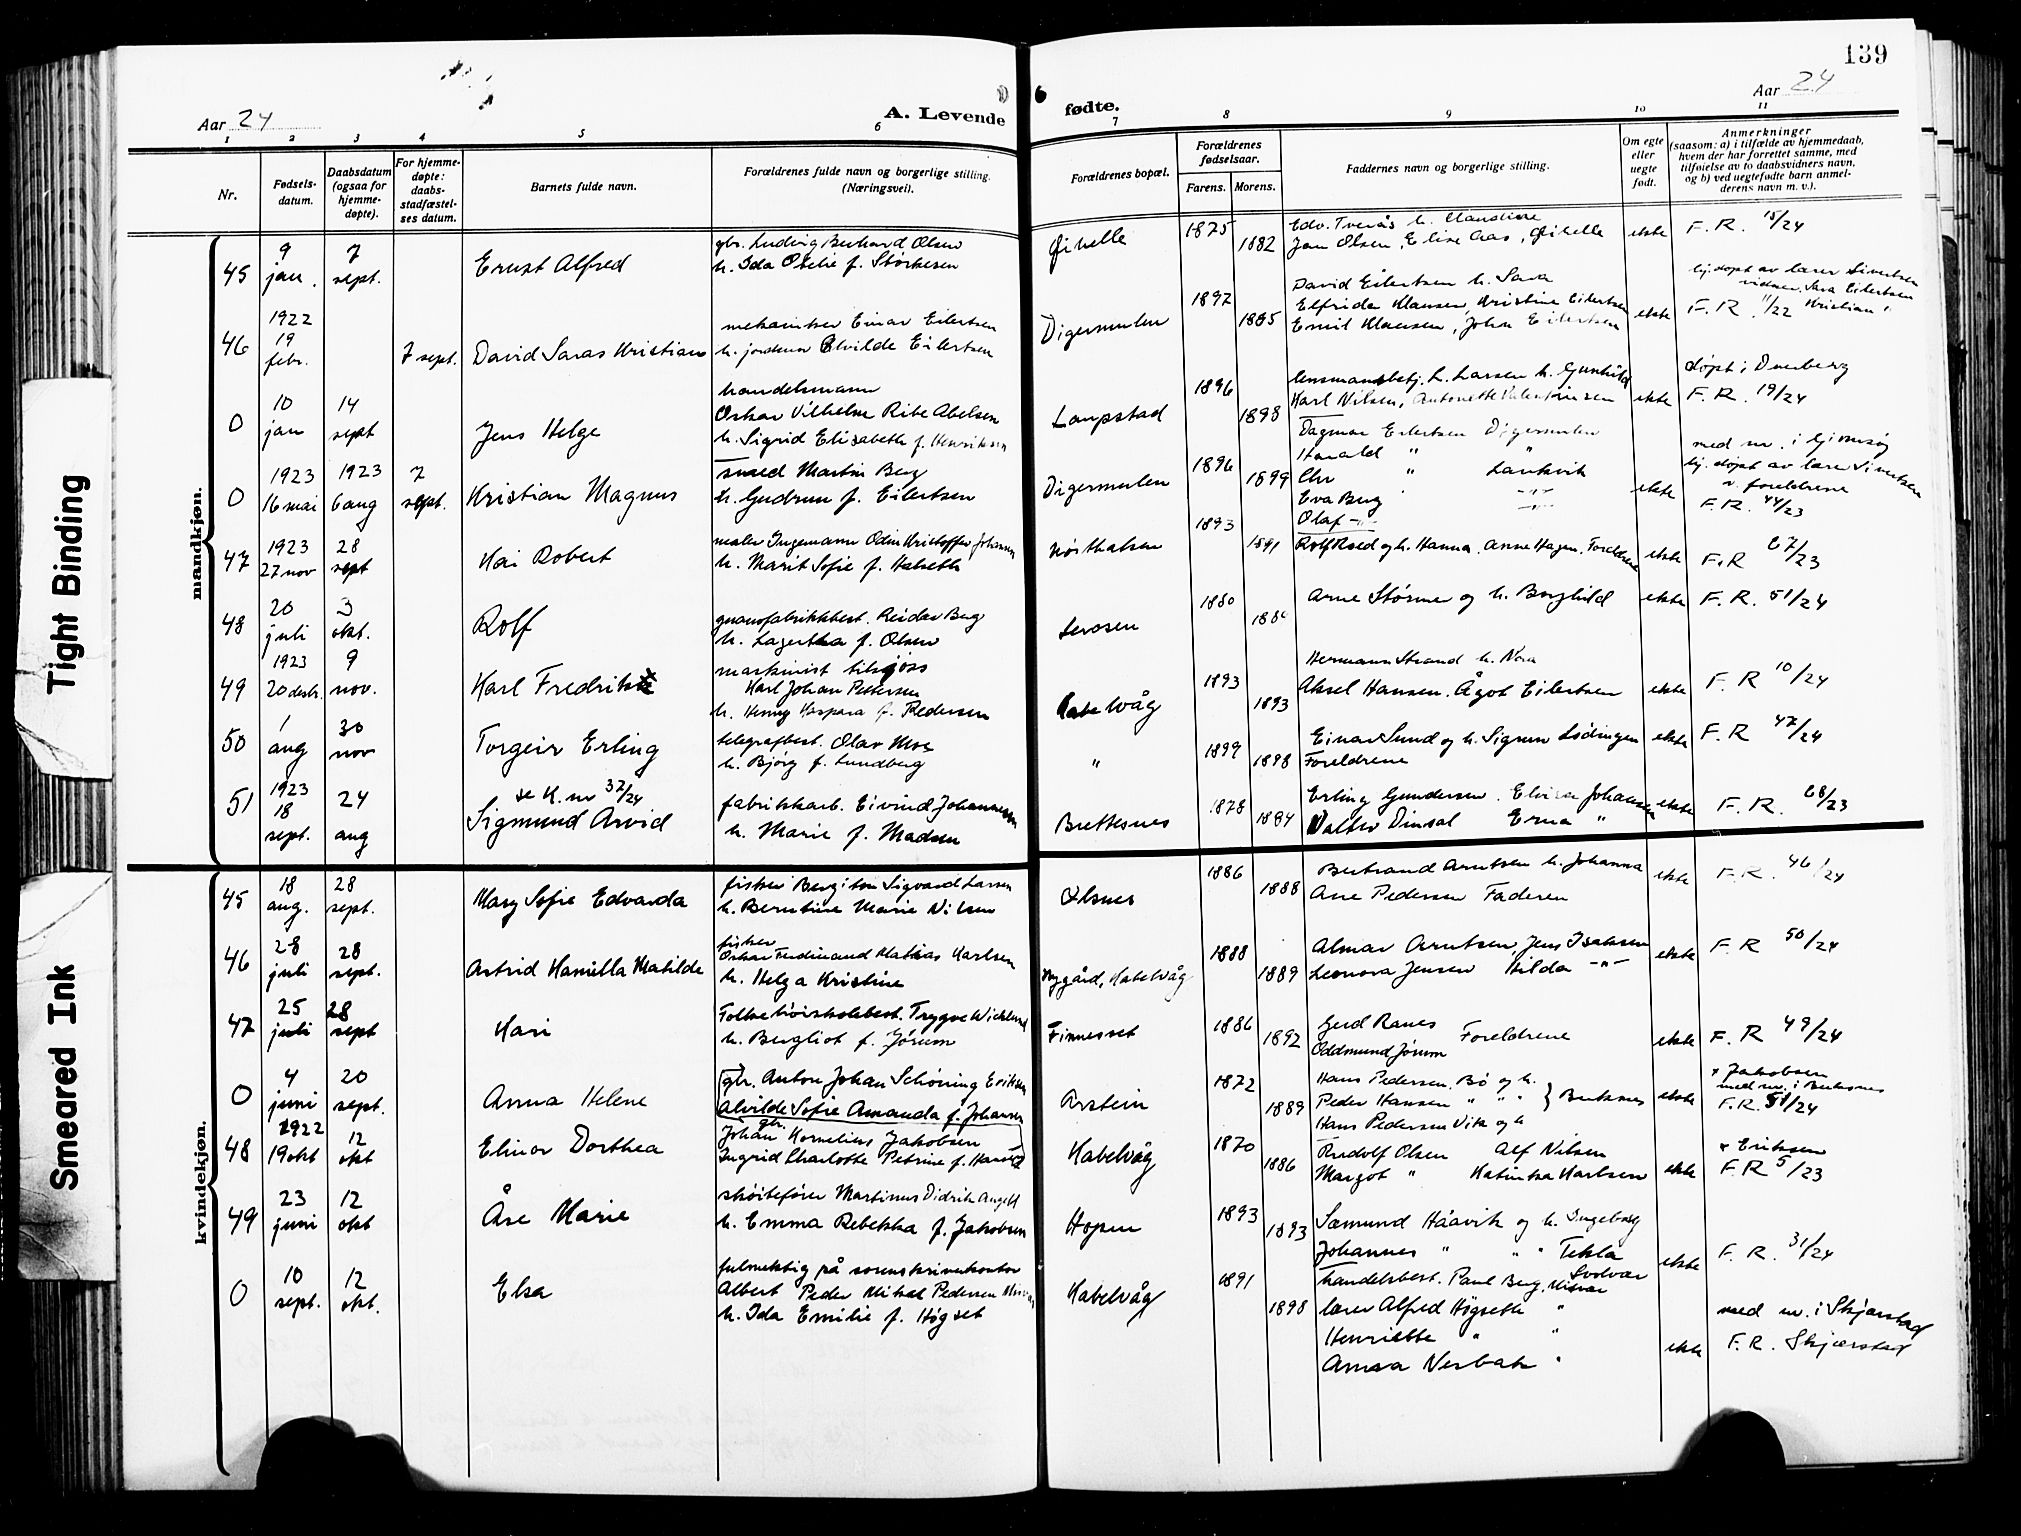 139
Aar 24
A. Levende
fødte.
Aar 24
1 2 3 4 5 6 7 8 9 10 11
Nr.
Fødsels-
datum.
Daabsdatum
(ogsaa for
hjemme-
døpte).
For hjemme-
døpte:
daabs-
stadfæstel-
ses datum.
Barnets fulde navn.
Forældrenes fulde navn og borgerlige stilling.
(Næringsvei).
Forældrenes bopæl.
Forældrenes
fødselsaar.
Farens. Morens.
Faddernes navn og borgerlige stilling.
Om egte
eller
uegte
født.
Anmerkninger
(saasom: a) i tilfælde av hjemmedaab,
hvem der har forrettet samme, med
tilføielse av to daabsvidners navn,
og b) ved uegtefødte barn anmel-
derens navn m. v.).
mandkjøn.
45
9
jan.
7
sept.
Ernst Alfred
gbr. Ludvig Olsen
h. Ida f. Størkesen
Øihelle
1875
1882
Edv. Tverås h.
Jan Olsen, Elise Aas, Øihelle
ekte
F. R. 15/24
46
1922
19
febr.
7 sept.
David Saras Kristian
mekaniker Einar Eilertsen
h. Alvilde Eilertsen
Digermulen
1897
1895
David Eilertsen h. Sara
Elfrida Klausen, Kristine Eilertsen
Emil Klausen, Johan Eilertsen
ekte
hj. døpt av lærer Sivertsen
vidner. Sara Eilertsen
F. R. 11/22 Kristian "
0
10
jan
14
sept
Jens Helge
handelsmann
Oskar Vilhelm Ribe Abelsen
h. Sigrid Elisabeth f. Henriksen
Laupstad
1896
1898
lensmannsbetj. L. Larsen h. Gunhild
Karl Nilsen, Antonette
ekte
døpt i Dverberg
F. R. 19/24
0
1923
16 mai
1923
6 aug
7
sept.
Kristian Magnus
smed Martin Berg
h. Gudrun f. Eilertsen
Digermulen
1896
1899
Dagmar Eilertsen Digermulen
Harald " "
Chr " Laukvik
Eva Berg -"-
Olaf -"- -"-
ekte
med nr. i Gimsøy
hj. døpt av lærer Sivertsen
v. foreldrene
F. R. 44/23
47
1923
27 nov
28
sept
Kai Robert
maler Ingemann Odin Kristoffer Johansen
h. Marit Sofie f. Halseth
1893
1891
Rolf Roed og h. Hanna, Anne Hagen. Foreldrene
ekte
F. R 67/23
48
20
juli
3
okt.
Rolf
guanofabrikkbest. Reidar Berg
h. Lagertha f. Olsen
1880
Arne Størmer og h. Borghild
ekte
F. R. 51/24
49
1923
20 desbr.
9
nov.
Karl Fredrik
maskinist tilsjøss
Karl Johan Pettersen
h. Henny Kaspara f. Pedersen
Kabelvåg
1893
1893
Hermann Strand h. Nora
Aksel Hansen. Ågot Eilertsen
ekte
F. R 10/24
50
1
aug
30
nov
Torgeir Erling
telegrafbest. Olav Moe
h. Bjørg f. Lundberg
"
1899
1898
Einar Lund og h. Sigrun Lødingen
Foreldrene
ekte
F. R 47/24
51
1923
18
sept.
24
aug
se K. nr 37/24
Sigmund Arvid
fabrikkarb. Eivind Johannessen
h. Marie f. Madsen
Brettesnes
1878
1884
Erling Gundersen. Elvira Johansen
Valter Erna "
ekte
F. R. 68/23
kvindekjøn.
45
18
aug.
28
sept.
Mary Sofie Edvarda
fisker Bergiton Sigvard Larsen
h. Berntine Marie Nilsen
Olsnes
1886
1888
Bertrand Arntsen h. Johanna
Ase Pedersen Faderen
ekte
F. R. 46/24
46
28
juli
28
sept.
Astrid Kamilla Matilde
fisker
Oskar Ferdinand Mathias Karlsen
h. Helga Kristine
Nygård, Kabelvåg
1888
1889
Almar Arntsen, Jens Isaksen
Leonora Jensen Hilda -"-
ekte
F. R 50/24
47
25
juli
28
sept
Kari
Folkehøiskolebest. Trygve Wicklund
h. Bergliot f. Jørum
Finnesset
1886
1892
Gerd Ranes Foreldrene
Oddmund Jørum
ekte
F. R 49/24
0
4
juni
20
sept.
Anna Helene
gbr. Anton Johan Schøning Eriksen
Alvilde Sofie Amanda f. Johansen
Arstein
1872
1889
Hans Pedersen, Bø og h.
Peder Hansen " " " } Buksnes
Hans Pedersen Vik og h
ekte
x Jakobsen
med nr. i Buksnes
F. R. 51/24
48
1922
19 okt
12
okt
Elinor Dorthea
gbr.
Johan Kornelius Jakobsen
Ingrid Charlotte Petrine f. Hansen
Kabelvåg
1870
1886
Rudolf Olsen Alf Nilsen
Margot " Katinka Karlsen
ekte
x Eriksen
F. R 5/23
49
23
juni
12
okt
Åse Marie
skøitefører Martinus Didrik Angell
h. Emma Rebekka f. Jakobsen
Hopen
1893
1893
Sæmund Håavik og h. Ingeborg
Johannes " " " Tekla
ekte
F. R. 31/24
0
10
sept.
12
okt.
Elsa
fulmektig på sorenskriverkontor
Albert Peder Mikal Pedersen Misvær
h. Ida Emilie f. Høgset
Kabelvåg
1891
1898
handelsbest. Paul Berg, Svolvær
lærer Alfred Høgseth "
Henriette " "
Anna Nerbak "
ekte
med nr. i Skjerstad
F. R. Skjerstad
Tight Binding
Smeared Ink